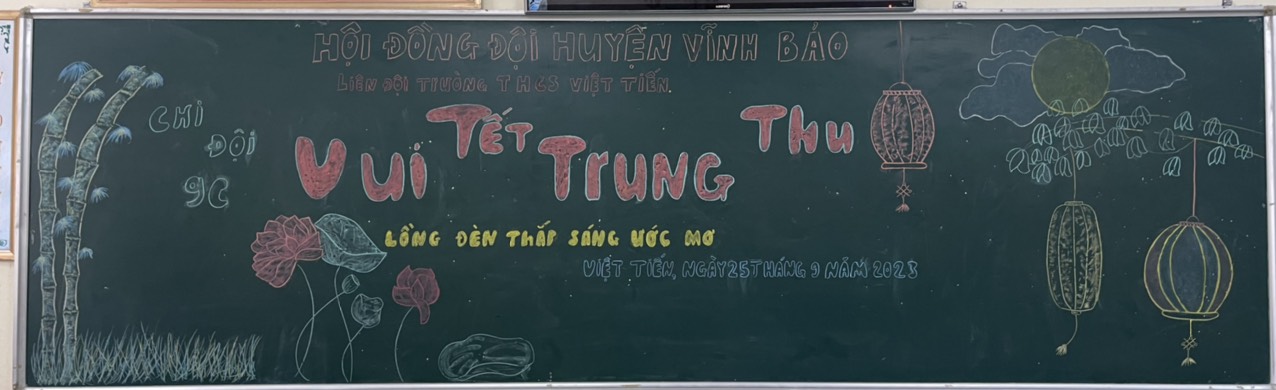 HỘI ĐỒNG ĐỘI HUYỆN VĨNH BẢO
LIÊN ĐỘI TRƯỜNG THCS VIỆT TIẾN.
CHI
ĐỘI
9C
VUI TẾT TRUNG THU
LỒNG ĐÈN THẮP SÁNG ƯỚC MƠ
VIỆT TIẾN, NGÀY 25 THÁNG 9 NĂM 2023